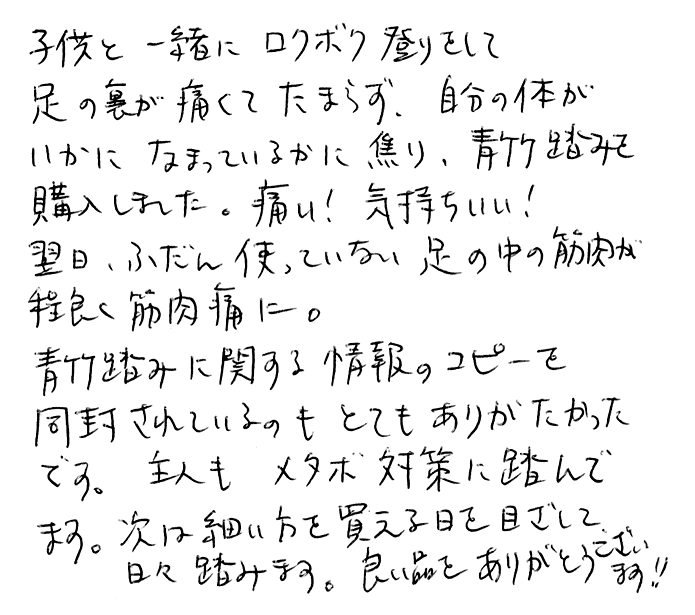 子供と一緒に ロクボク 登りをして
足の裏が痛くてたまらず、自分の体が
いかに なまっているかに 焦り、青竹踏みを
購入しました。痛い！気持ちいい！
翌日、ふだん使っていない足の中の筋肉が
程良く筋肉痛に。
青竹踏みに関する情報のコピーを
同封されているのもとてもありがたかった
です。主人も メタボ対策に踏んで
ます。次は細い方を買える日を目ざして、
日々踏みます。良い品をありがとうございます!!